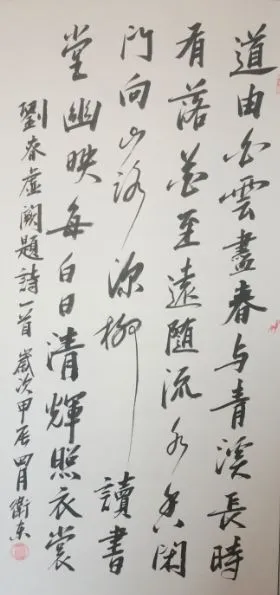 道由白雲盡春与青溪長時
有落花至遠随流水香閑
门向山路深柳讀書
堂幽映每白日清輝照衣裳
劉春虛阙題詩一首歲次甲辰四月衛东